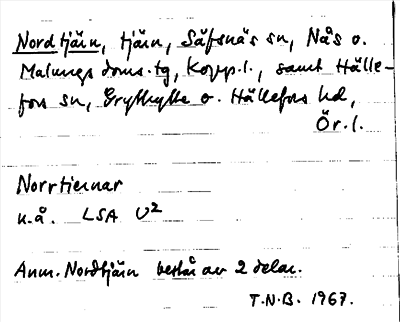 Nordtjärn, tjärn, Säfsnäs sn, Nås o.
Malungs doms.tg, Kopp.l., samt Hälle-
fors sn, Grythytte o. Hällefors hd,
Ör.l.
Norrtiernar
u.å. LSA U²
Anm. Nordtjärn består av 2 delar.
T.N.B. 1967.